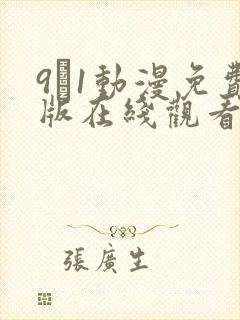 9�1動漫免費
版在綫觀看
張廣生